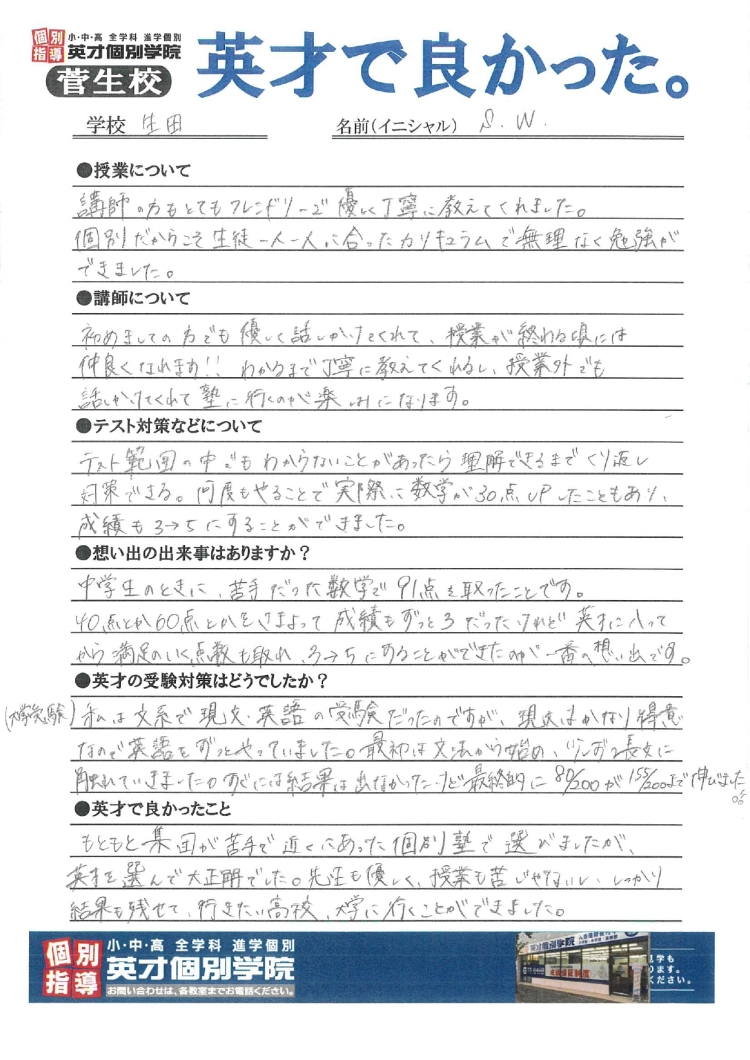 個別指導
小・中・高 全学科 進学個別
英才個別学院
菅生校
英才で良かった。
学校 生田
名前(イニシャル) S.W.
●授業について
講師の方もとてもフレンドリーで優しく丁寧に教えてくれました。
個別だからこそ生徒一人一人に合ったカリキュラムで無理なく勉強が
できました。
●講師について
初めましての方でも優しく話しかけてくれて、授業が終わる頃には
仲良くなれます!! わかるまで丁寧に教えてくれるし、授業外でも
話しかけてくれて塾に行くのが楽しみになります。
●テスト対策などについて
テスト範囲の中でもわからないことがあったら理解できるまでくり返し
対策できる。何度もやることで実際に数学が30点UPしたこともあり、
成績も3→5にすることができました。
●想い出の出来事はありますか?
中学生のときに、苦手だった数学で91点を取ったことです。
40点とか60点とかをさまよって成績もずっと3だったけれど英才に入って
から満足のいく点数も取れ、3→5にすることができたのが一番の想い出です。
●英才の受験対策はどうでしたか?
(大学受験) 私は文系で現文・英語の受験だったのですが、現文はかなり得意
なので英語をずっとやっていました。最初は文法から始め、少しずつ長文に
触れていきました。すぐには結果は出なかったけど最終的に80/200が155/200まで伸びました。
●英才で良かったこと
もともと集団が苦手で近くにあった個別塾で選びましたが、
英才を選んで大正解でした。先生も優しく、授業も苦じゃないし、しっかり
結果も残せて、行きたい高校、大学に行くことができました。
個別指導
小・中・高 全学科 進学個別
英才個別学院
お問い合わせは、各教室までお電話ください。
英才個別学院
見学も
ります。
ください。